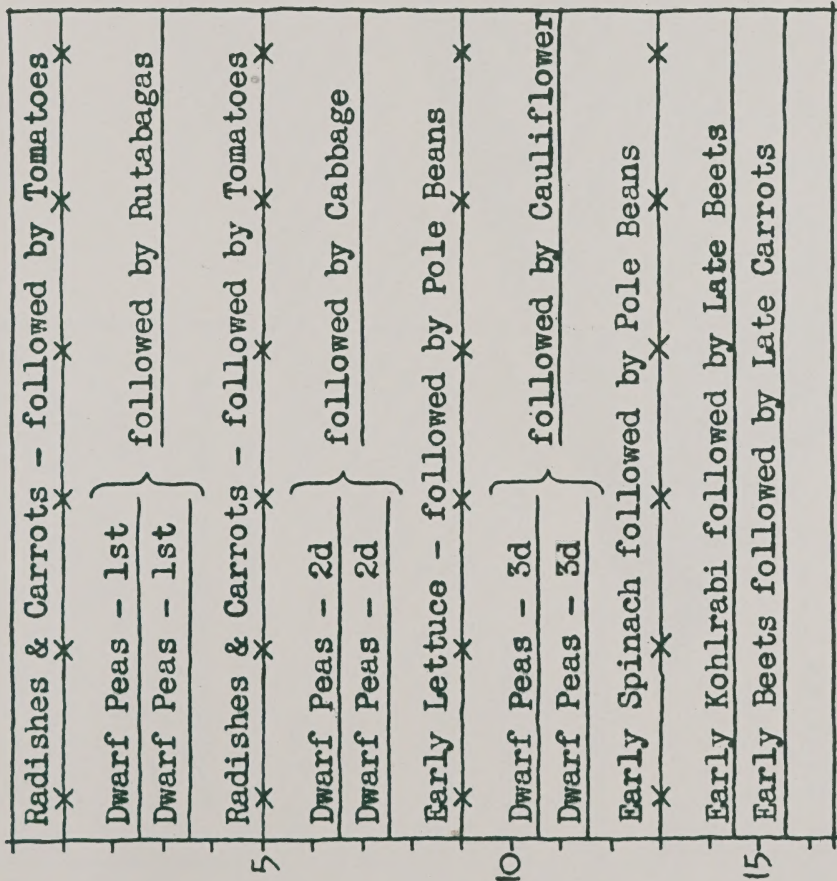 Radishes & Carrots - followed by Tomatoes
Dwarf Peas - 1st
Dwarf Peas - 1st
followed by Rutabagas
Radishes & Carrots - followed by Tomatoes
5
Dwarf Peas - 2d
Dwarf Peas - 2d
followed by Cabbage
Early Lettuce - followed by Pole Beans
10
Dwarf Peas - 3d
Dwarf Peas - 3d
followed by Cauliflower
Early Spinach followed by Pole Beans
Early Kohlrabi followed by Late Beets
Early Beets followed by Late Carrots
15